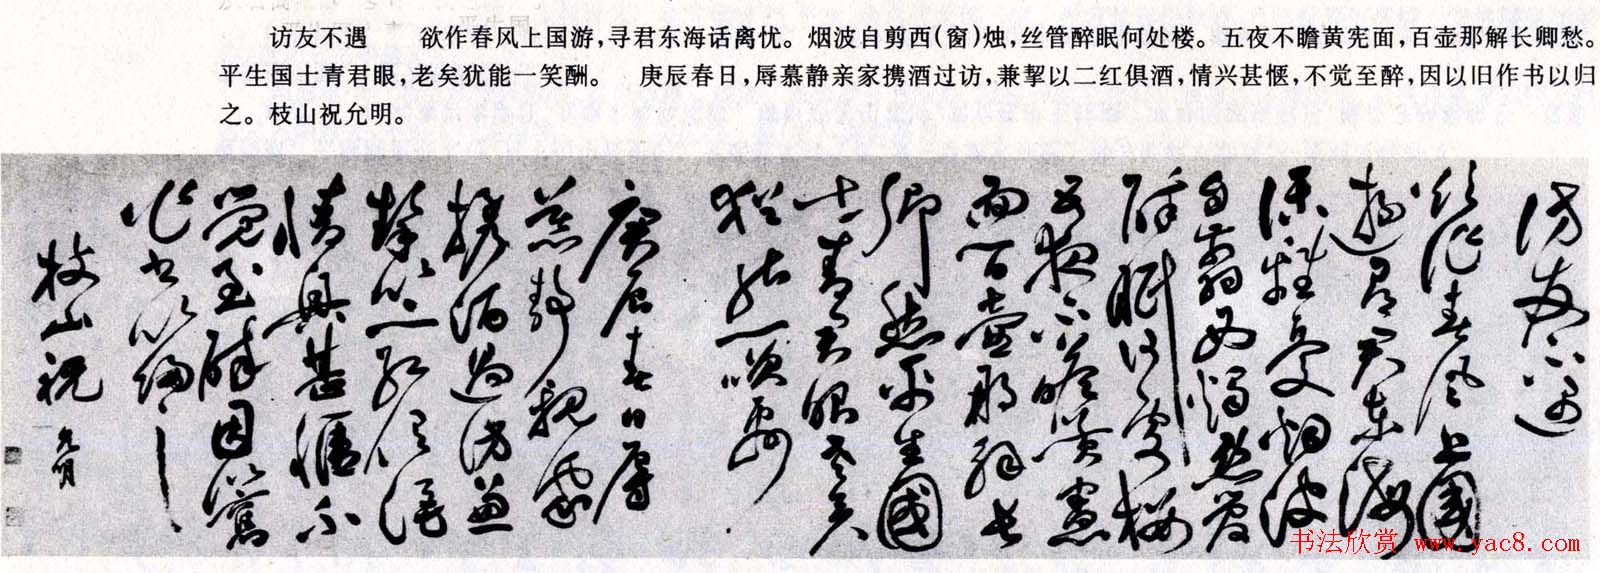 访友不遇　　欲作春风上国游,寻君东海话离忧。烟波自剪西(窗)烛,丝管醉眠何处楼。五夜不瞻黄宪面,百壶那解长卿愁。
平生国士青君眼,老矣犹能一笑酬。　庚辰春日,辱慕静亲家携酒过访,兼挈以二红俱酒,情兴甚惬,不觉至醉,因以旧作书以归
之。枝山祝允明。
訪友不遇
欲作春風上國
遊尋君東海
話離憂烟波
自剪西燭絲管
醉眠何處樓
五夜不瞻黃憲
面百壺那解長
卿愁平生國
士青君眼老矣
猶能一笑酬
庚辰春日辱
慕靜親家
攜酒過訪兼
挈以二紅俱酒
情興甚愜不
覺至醉因以舊
作書以歸之
枝山祝允明
书法欣赏 www.yac8.com